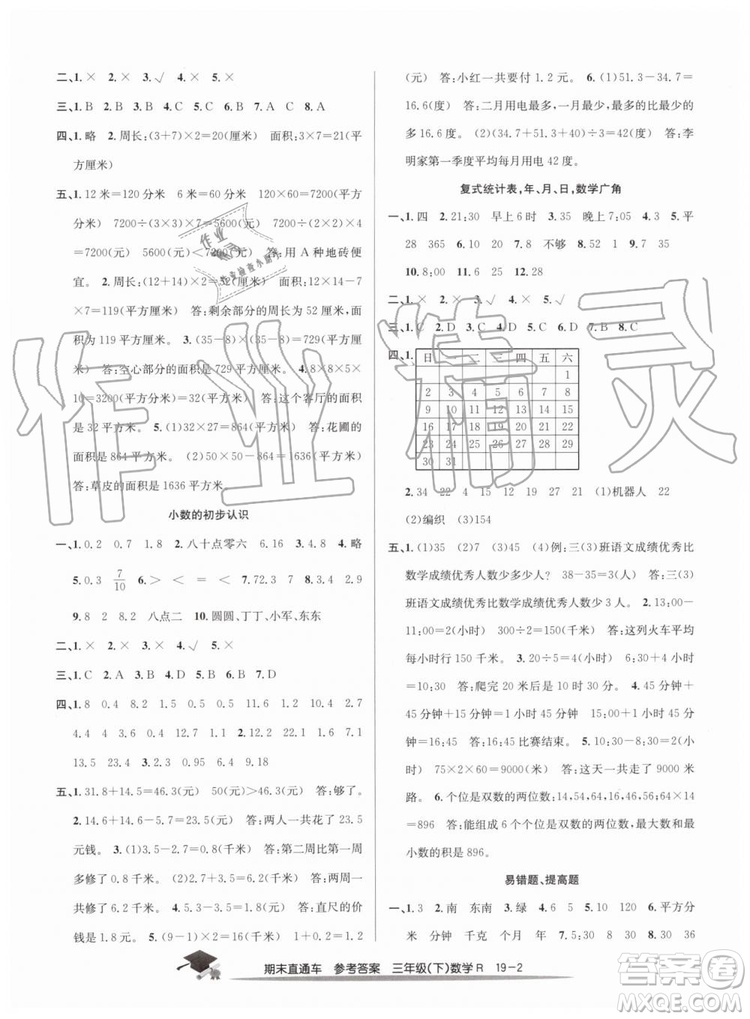 二、1.× 2.× 3.√ 4.× 5.×
三、1.B 2.B 3.B 4.C 5.C 6.A 7.B 8.A
四、1.略 2.周长:(3+7)×2=20(厘米) 面积:3×7=21(平
方厘米)
五、1.12米=120分米 6米=60分米 120×60=7200(平方
分米) 7200÷(3×3)×7=5600(元) 7200÷(2×2)×4
=7200(元) 5600(元)<7200(元) 答:用A种地砖便
宜。 2.(12+14)×2=52(厘米) 面积:12×14-7×
7=119(平方厘米) 答:剩余部分的周长为52厘米,面
积为119平方厘米。 3.(35-8)×8×4=864(平方厘
米) 答:空心部分的面积是864平方厘米。 4.8×8×5×
10=3200(平方分米)=32(平方米) 答:这个客厅的面积
是32平方米。 5.(1)32×27=864(平方米) 答:花圃的
面积是864平方米。 (2)50×50-864=1636(平方米)
答:草皮的面积是1636平方米。
小数的初步认识
一、1.0.2 0.7 2.八十点零六 6.16 3.8.8 4.略
5.0.3 7/10 6.> < = < 7.72.3 8.1.9
9.8 2 8.2 八点二 10.圆圆、丁丁、小军、东东
二、1.× 2.× 3.× 4.√ 5.×
三、1.C 2.A 3.B 4.B 5.C 6.B 7.D
四、1.8 0.4 2.5 0.4 11.6 0.5 2.24.2 7.1
13.5 4.8 0.9 5.2 3.12 24.51 0.9 7.1
23.4 15.8
五、1.31.8+14.5=46.3(元) 50(元)>46.3(元) 答:够了。
2.14.6+8.9=23.5(元) 答:两人一共花了23.5
元钱。 3.(1)3.5-2.7=0.8(千米) 答:第二周比第一周
多修了0.8千米。 (2)2.7+3.5=6.2(千米) 答:两周一共
修了6.2千米。 4.3.5-2.7=0.8(元) 答:直尺的价
钱是0.8元。 5.(9-1)×2=16(元) 16-14.8=1.2
(元) 答:小红一共要付1.2元。 6.(1)51.3-34.7=
16.6(度) 答:二月用电最多,一月最少,最多的比最少的
多16.6度。 (2)(34.7+51.3+40)÷3=42(度) 答:李
明家第一季度平均每月用电42度。
复式统计表,年、月、日,数学广角
一、1.四 2.21:30 早上6时 3.35 晚上7:05 4.3 5.平
28 365 6.120 7.0 不够 8.18 9.65
10.8:00 11.6 12.5 2-28
二、1.× 2.× 3.√ 4.√ 5.×
三、1.C 2.D 3.C 4.D 5.B 6.D 7.B 8.C
四、1.
日 一 二 三 四 五 六
1
2 3 4 5 6 7 8
9 10 11 12 13 14 15
16 17 18 19 20 21 22
23 24 25 26 27 28 29
30 31
2.34 22 4 15 35 44 (1)机器人 22
(2)编织 (3)154
五、1.(1)45 (2)7 (3)(45) (4)例:三(3)班语文成绩优秀比
数学成绩优秀人数少多少人? 38-35=3(人) 答:三(3)
班语文成绩优秀人数比数学成绩优秀人数少3人。 2.
20:30-18:30=2(小时) 300÷2=150(千米) 答:这列火车平均
每小时行150千米。 3.20÷5=4(小时) 6:10+4(小时)
=10:10 答:爬完20千米时是10:10。 4.45分钟+
45分钟+15分钟=1(小时)45(分钟) 15:00+1(小时)
45(分钟)=16:45 答:16:45比赛结束。 5.10÷5=2(小
时) 75×2×60=9000(米) 答:两小时走了9000米
路。 6.个位是双数的两位数:14,54,16,46,64,56 16×56
=896 答:能组成6个个位是双数的两位数,最大数和最
小数的积是896。
易错题、提高题
一、1.2 2.南 东南 3.绿 4.30 5.12 6.平方分
米 分钟 千克 个月 年 7.8 30 8.30
期末直通车 参考答案 三年级(下)数学R 19-2
作业
精灵
答案圈